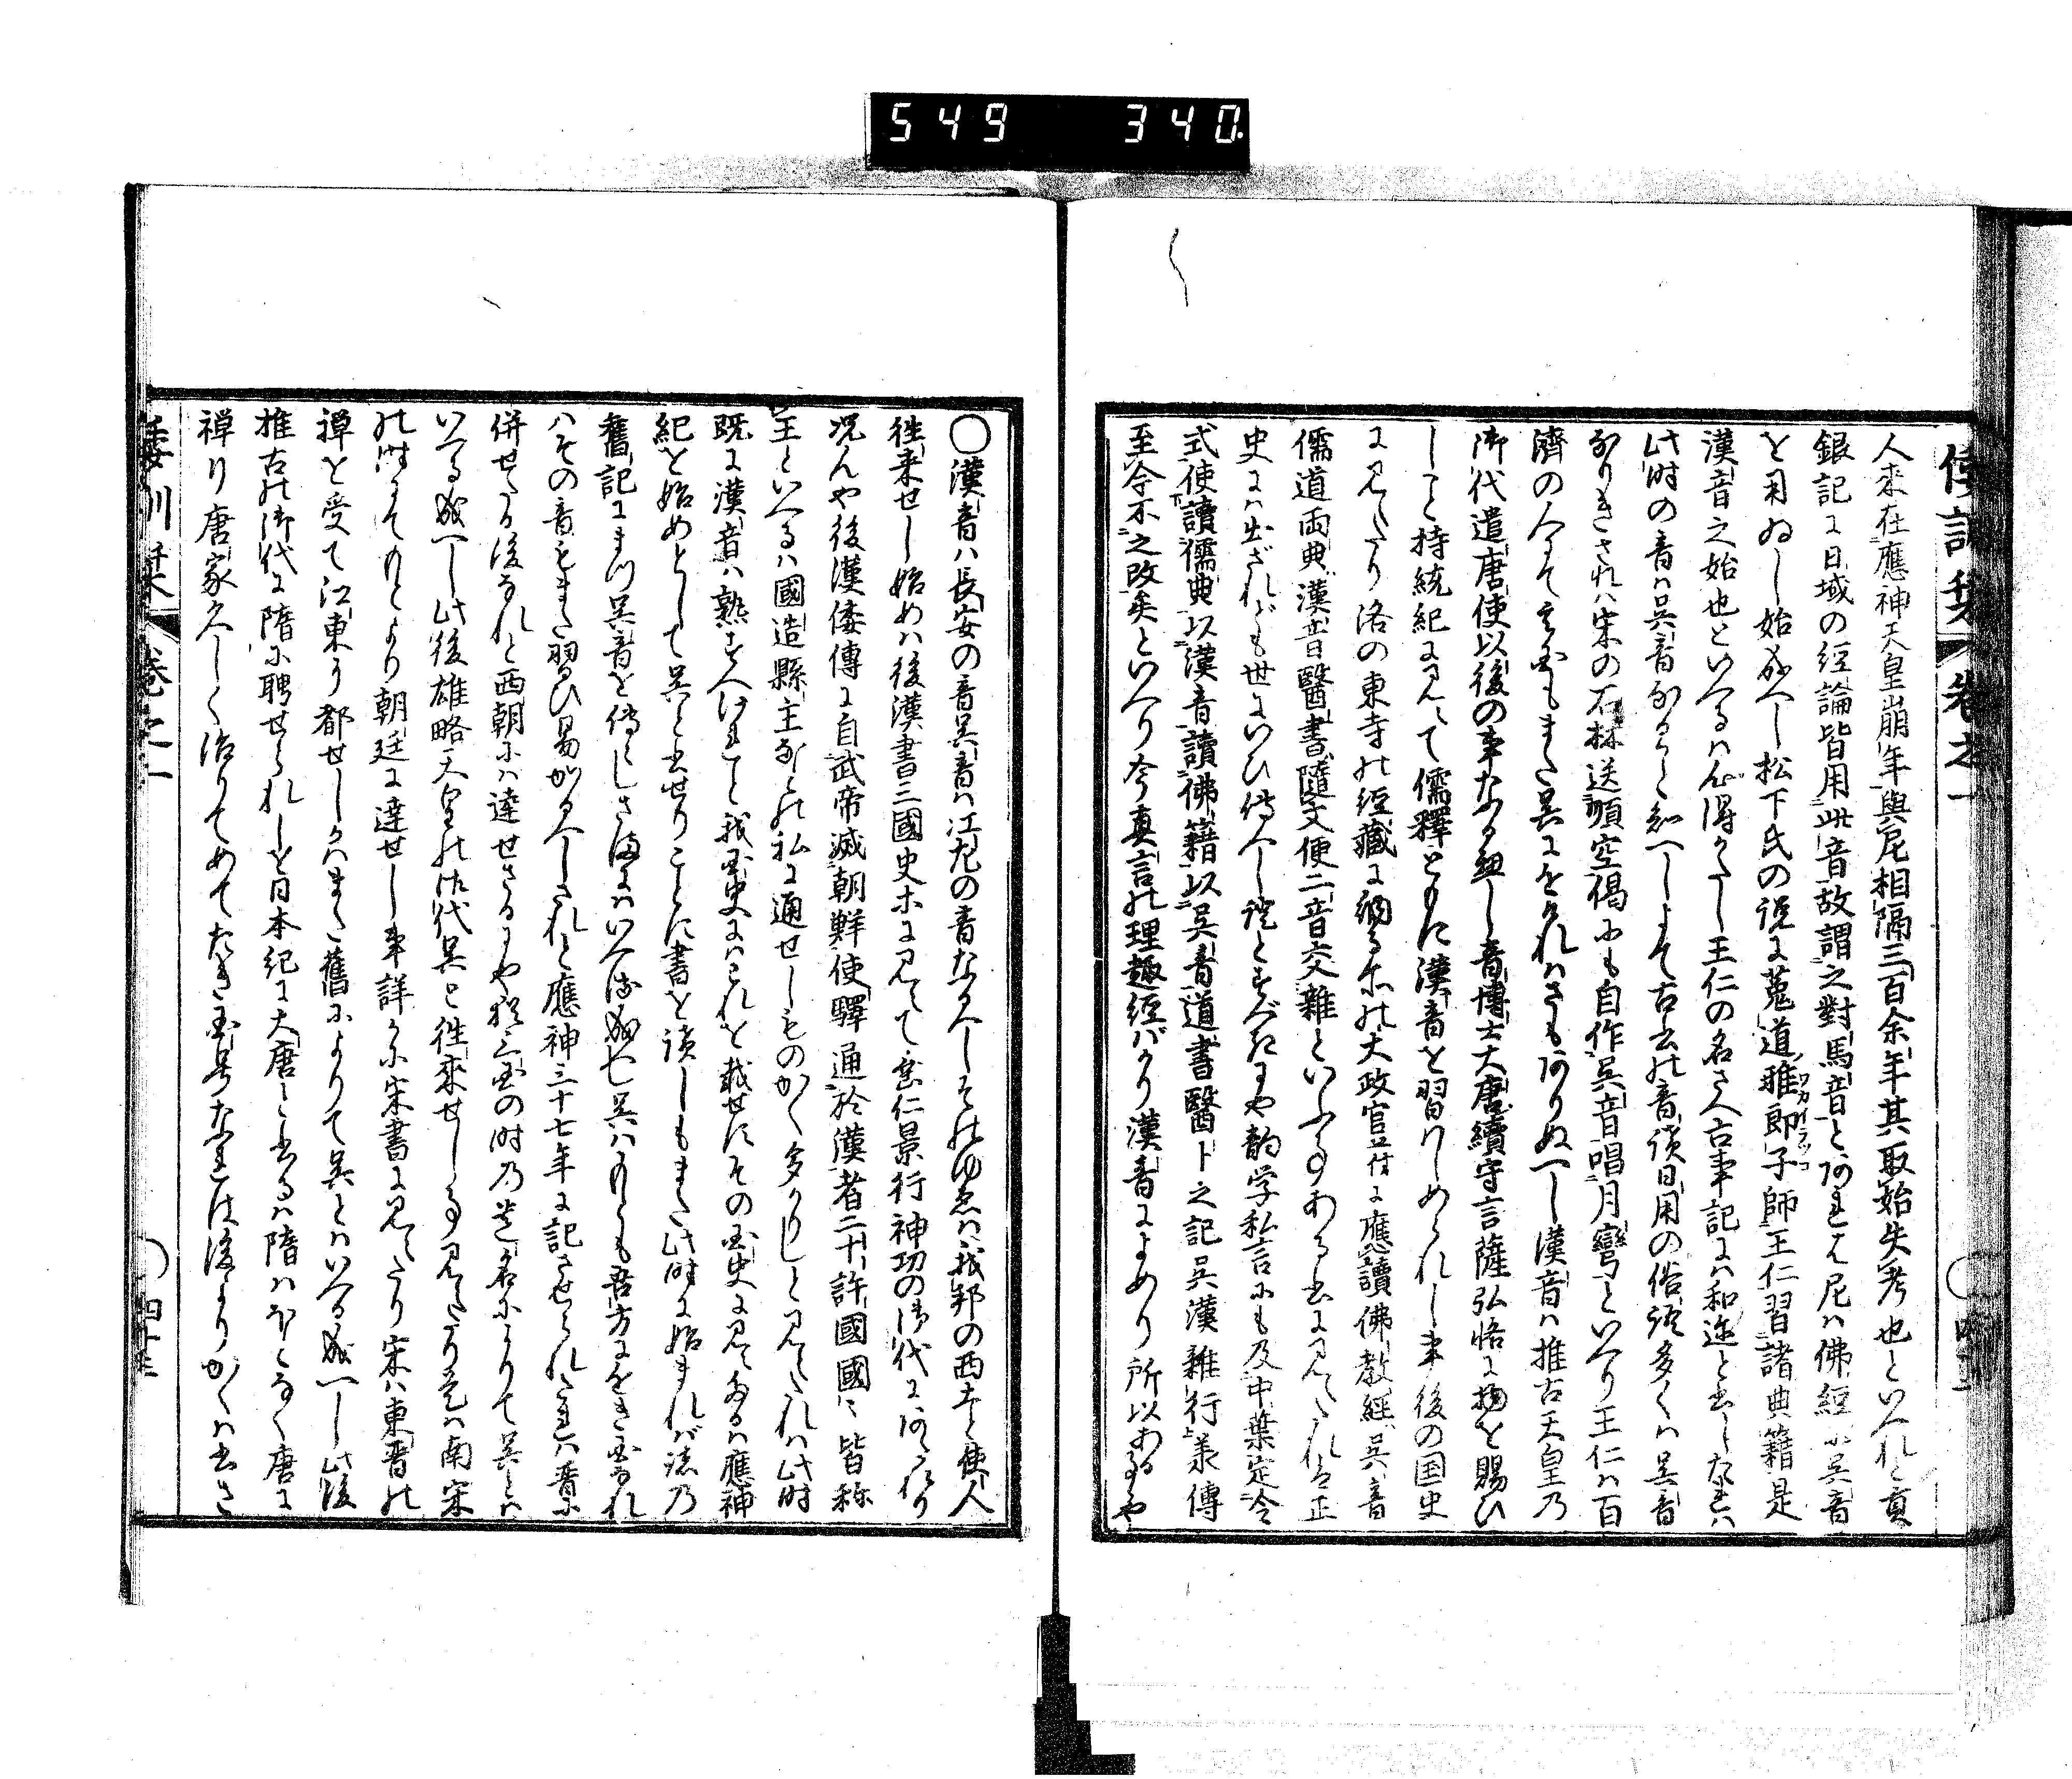 549 340
倭訓栞 卷之一
人來在應神天皇崩年與尼相隔三百余年其取始失考也といへれと眞
銀記に日域の經論皆用此音故謂之對馬音とあれは尼は佛經に呉音
を用ゐし始成へし松下氏の説に菟道雅郎子師王仁習諸典籍是
漢音之始也といへるは心得かたし王仁の名さへ古事記には和迩と書したれは
此時の音は呉音なるを知へしよて古書の音讀日用の俗語多くは呉音
なりきされは宋の石林送顗空偈にも自作呉音唱月彎といへり王仁は百
濟の人にて其國もまた呉にをかれはさもありぬへし漢音は推古天皇乃
御代遣唐使以後の事なる歟し音博士大唐續守言薩弘恪に物を賜ひ
しこと持統紀に見えて儒釋ともに漢音を習はしめられし事後の国史
に見えたり洛の東寺の經藏に納る所の太政官符に應讀佛教經呉音
儒道両典漢音醫書隨文便二音交雜といふ事ある書に見えたれは正
史には出ざれども世にいひ傳へし說とすべきにや韵学私言にも及中葉定令
式使讀儒典以漢音讀佛籍以呉音道書醫卜之記呉漢雜行並承傳
至今不之改矣といへり今真言の理趣經ばかり漢音によめり所以あるにや
○漢音は長安の音呉音は江左の音なるへしそのゆゑは我邦の西土と使人
往來せし始めは後漢書三國史等に見えて垂仁景行神功の御代にあたれり
况んや後漢倭傳に自武帝滅朝鮮使驛通於漢者三十許國國々皆称
王といへるは國造縣主などの私に通せしものかく多かりしと見えたれは此時
既に漢音は熟すへけれと我國史にはこれを載せすその國史に見えたるは應神
紀を始めとして呉と書せりことに書を讀しもまた此時に始まれば諸乃
舊記にまづ呉音を傳へしさまにいへる成へし呉はもとも吾方にちかき國なれ
はその音もまた習ひ易かるへしされと應神三十七年に記させられたるは晋に
併せたる後なれと西朝には達せさるにや猶三國の時乃差名によりて呉とは
いへる成へし此後雄略天皇の御代呉と往來せし事見えたり是は南宋
の時にてもとより朝廷に達せし事詳かに宋書に見えたり宋は東晋の
禅を受て江東に都せしかはまた舊によりて呉とはいへる成へし此後
推古の御代に隋に聘せられしを日本紀に大唐と書るは隋はほとなく唐に
禅り唐家久しく治りてめてたき國号なれは後よりかくは書さ
倭訓栞 卷之一